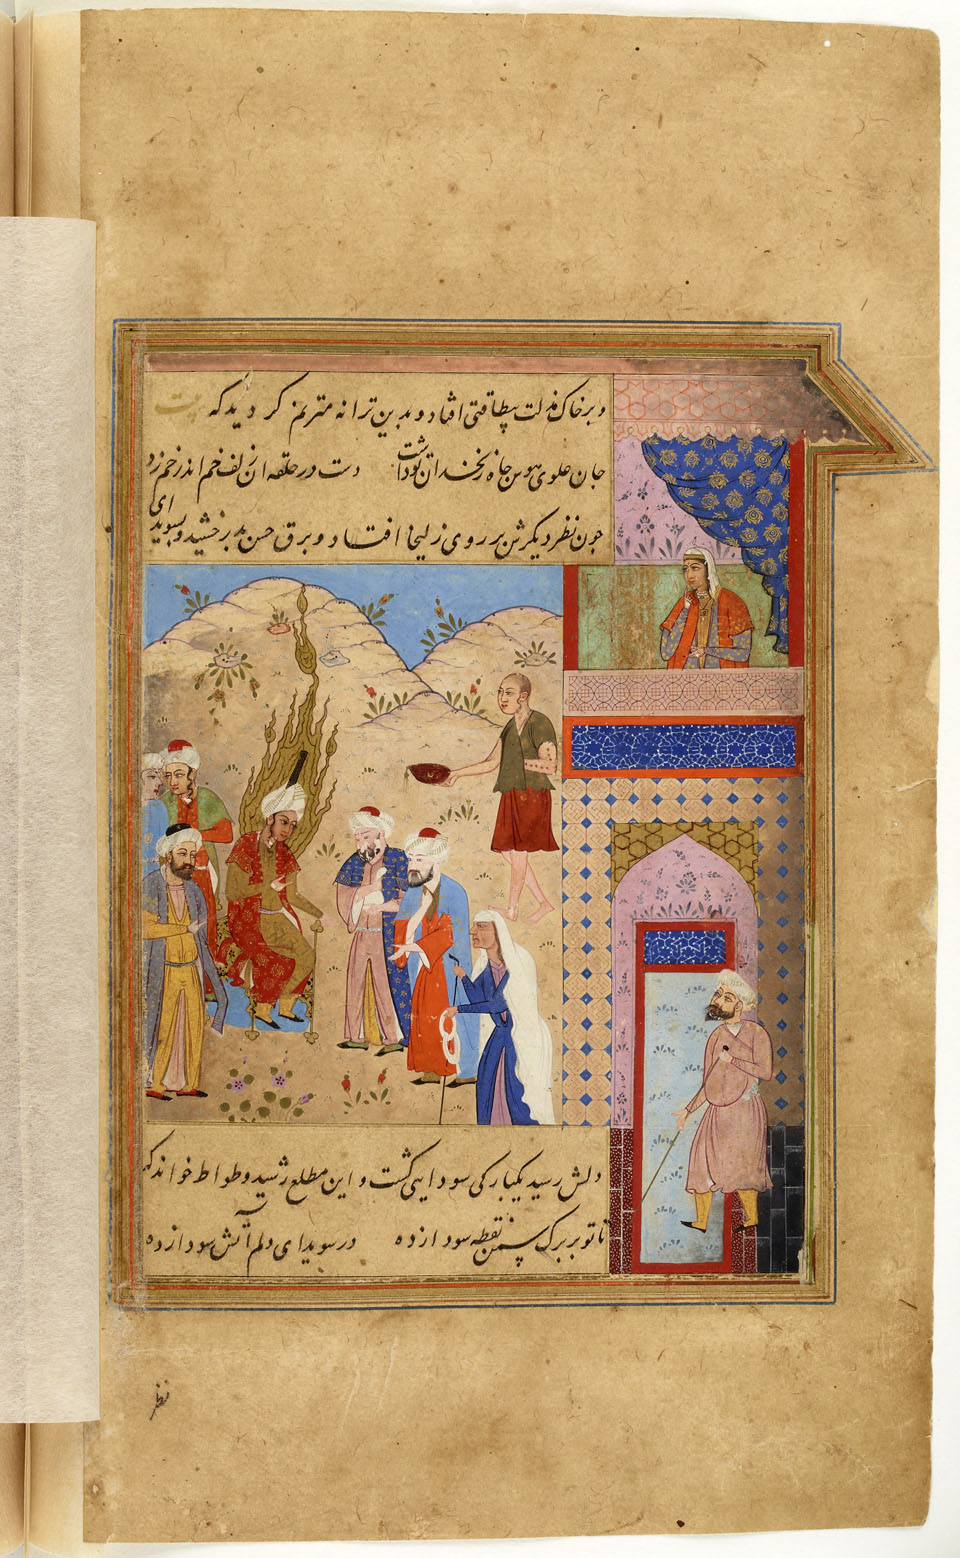 و بر خاک مذلت بیطاقتی افتاد و بدین ترانه مترنم کردید که بیت
جان علوی هوس چاه زنخدان تو داشت دست در حلقه ان زلف خم اندر خم زد
چون نظر دیکرش بر روی زلیخا افتاد و برق حسن بدرخشید و بسویدای
دلش رسید یکبارکی سودایی کشت و این مطلع رشید وطواط خواند که
تا تو بر برک سمن نقطه سودا زده در سویدای دلم آتش سودا زده
نظر